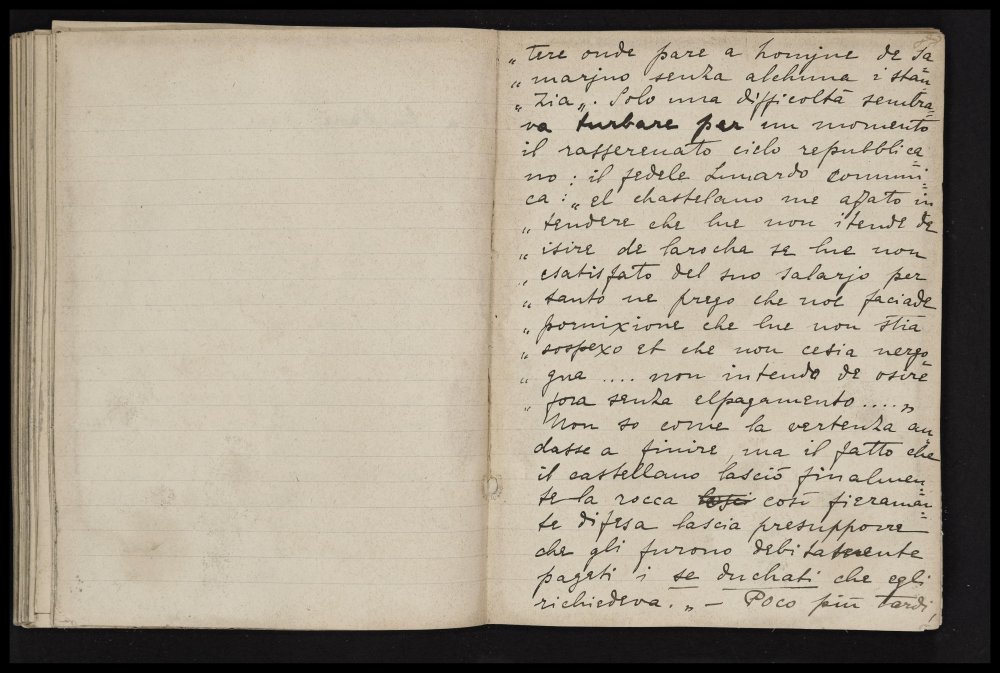 „ tere onde pare a homjne de Sa
„ marjno senza alchuna i stan=
„ zia „. Solo una difficoltà sembra=
va turbare per un momento
il rasserenato cielo repubblica=
no : il fedele Lunardo communi=
ca : „ el chastelano me afato in
„ tendere che lue non itende de
„ isire de larocha se lue non
„ esatisfato del suo salarjo per
„ tanto ue prego che noe faciade
„ pornixione che lue non stia
„ sospexo et che non cesia uergo=
„ gna .... non intende de osire
„ fora senza elpagamento .... „
Non so come la vertenza an
dasse a finire, ma il fatto che
il castellano lasciò finalmen=
te la rocca così fieramen=
te difesa lascia presupporre
che gli furono debitamente
pagati i se duchati che egli
richiedeva. „ — Poco più tardi,